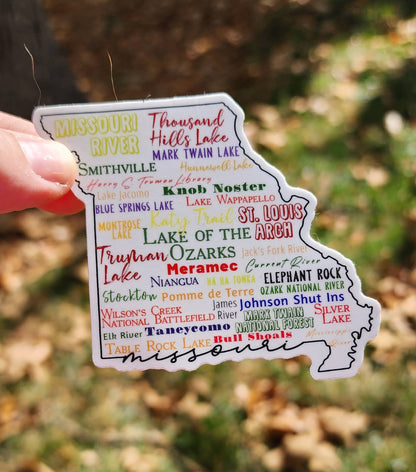 MISSOURI
RIVER
Thousand
Hills Lake
MARK TWAIN LAKE
SMITHVILLE
Hunnewell Lake
Harry S Truman Library
Knob Noster
Lake Jacomo
LAKE WAPPAPELLO
BLUE SPRINGS LAKE
Katy Trail
ST. LOUIS
ARCH
MONTROSE
LAKE
LAKE OF THE
OZARKS
Truman
Lake
Jack's Fork River
Meramec
Current River
NIANGUA
HA HA TONKA
ELEPHANT ROCK
OZARK NATIONAL RIVER
Stockton
Pomme de Terre
James
River
Johnson Shut Ins
WILSON'S CREEK
NATIONAL BATTLEFIELD
MARK TWAIN
NATIONAL FOREST
SILVER
LAKE
Elk River
Taneycomo
Bull Shoals
Mississippi
River
TABLE ROCK LAKE
missouri